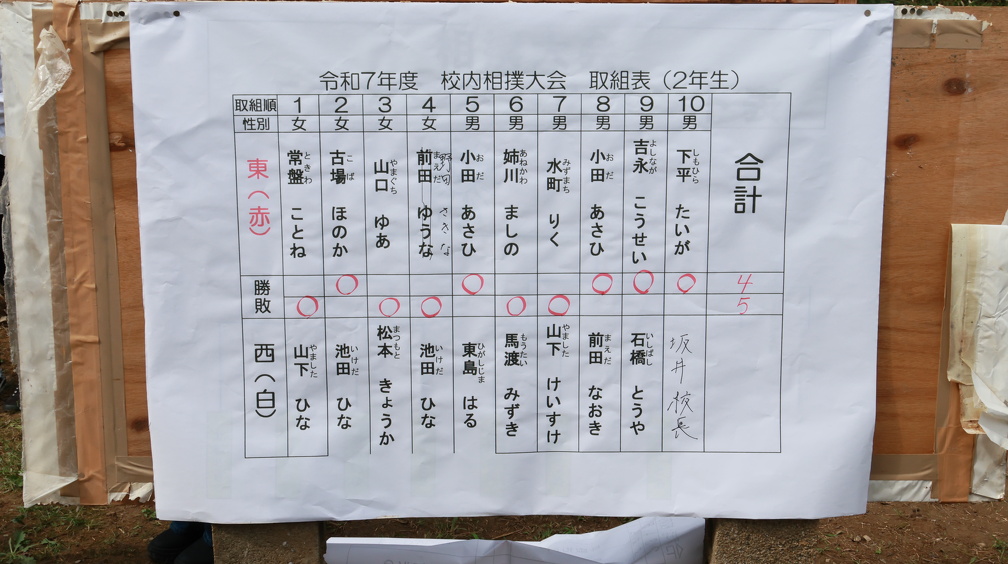 令和7年度 校内相撲大会 取組表(2年生)
取組順 1 2 3 4 5 6 7 8 9 10 合計
性別 女 女 女 女 男 男 男 男 男 男
東(赤) 常盤 ことね 古場 ほのか 山口 ゆあ 前田 ゆうな 小田 あさひ 姉川 ましの 水町 りく 小田 あさひ 吉永 こうせい 下平 たいが
ときわ こば やまぐち まえだ おだ あねかわ みずまち おだ よしなが しもひら
勝敗 ○ ○ ○ ○ ○ 4
○ ○ ○ ○ ○ 5
西(白) 山下 ひな 池田 ひな 松本 きょうか 池田 ひな 東島 はる 馬渡 みずき 山下 けいすけ 前田 なおき 石橋 とうや 坂井 校長
やました いけだ まつもと いけだ ひがしじま もうたい やました まえだ いしばし